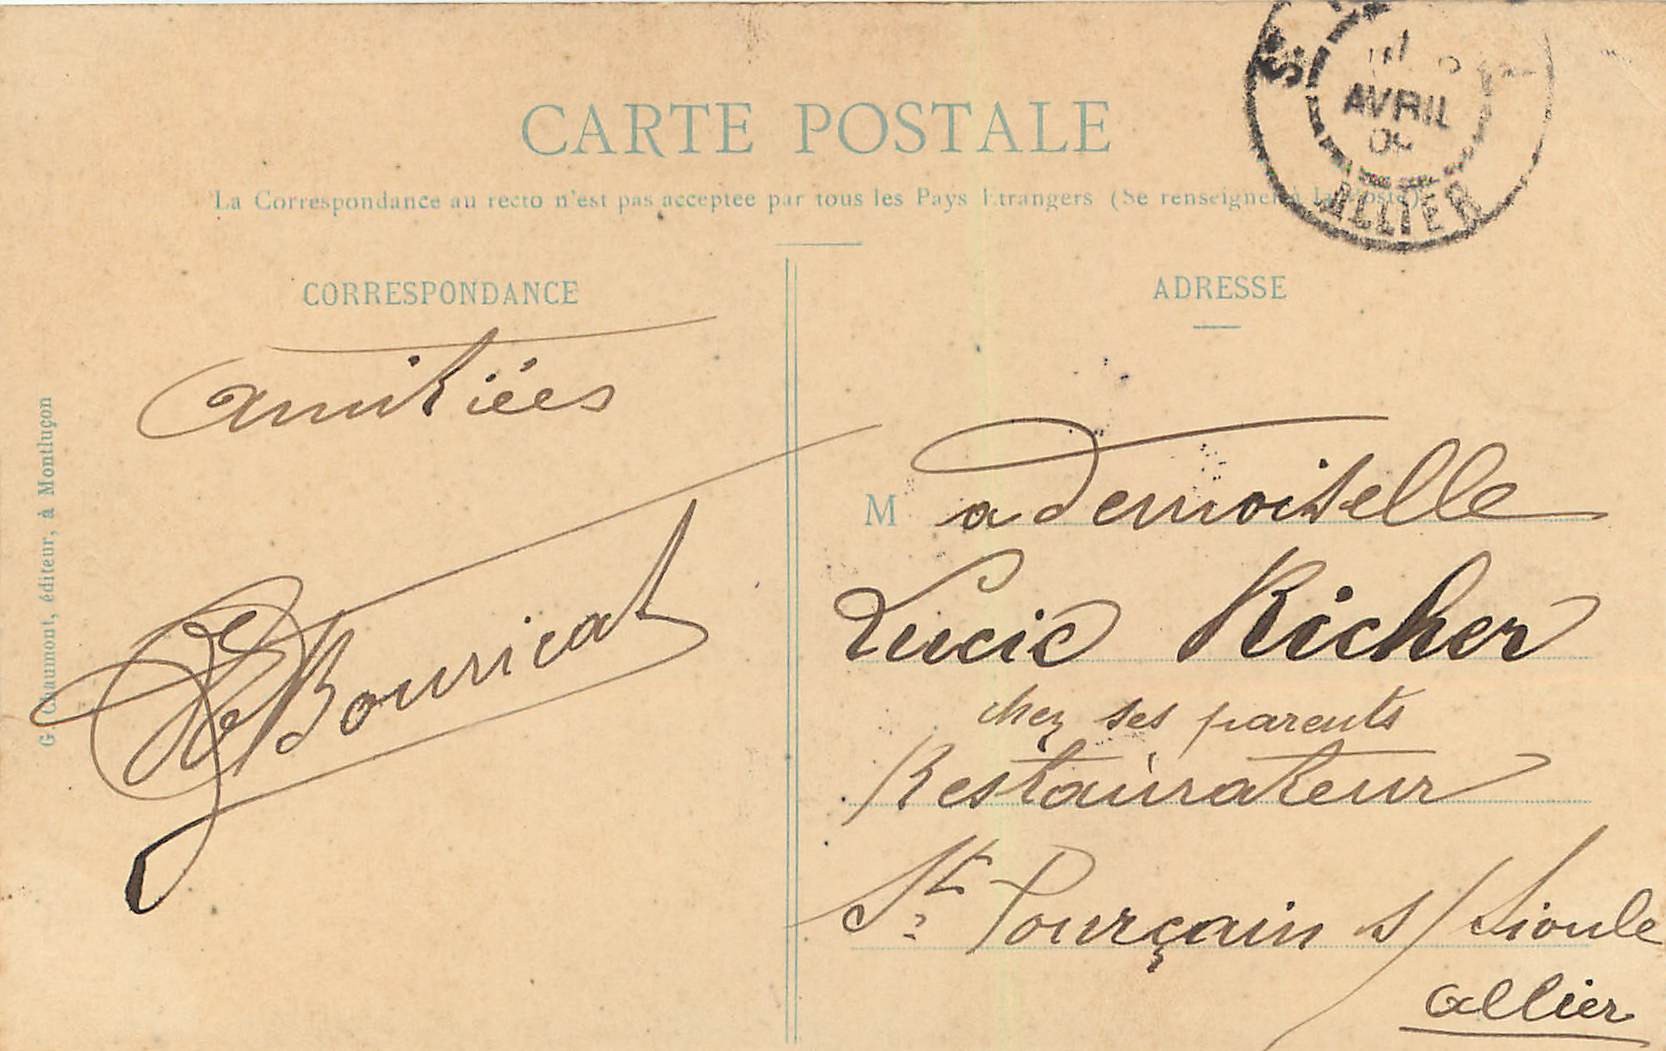 CARTE POSTALE
La Correspondance au recto n'est pas acceptée par tous les Pays Etrangers (Se renseigner à la Poste)
CORRESPONDANCE
ADRESSE
AVRIL
ALLIER
amitiées
Bouricat
G. Chaumont, éditeur, à Montluçon
Mademoiselle
Lucie Richer
chez ses parents
Restaurateur
St Pourçain s/ Sioule
Allier